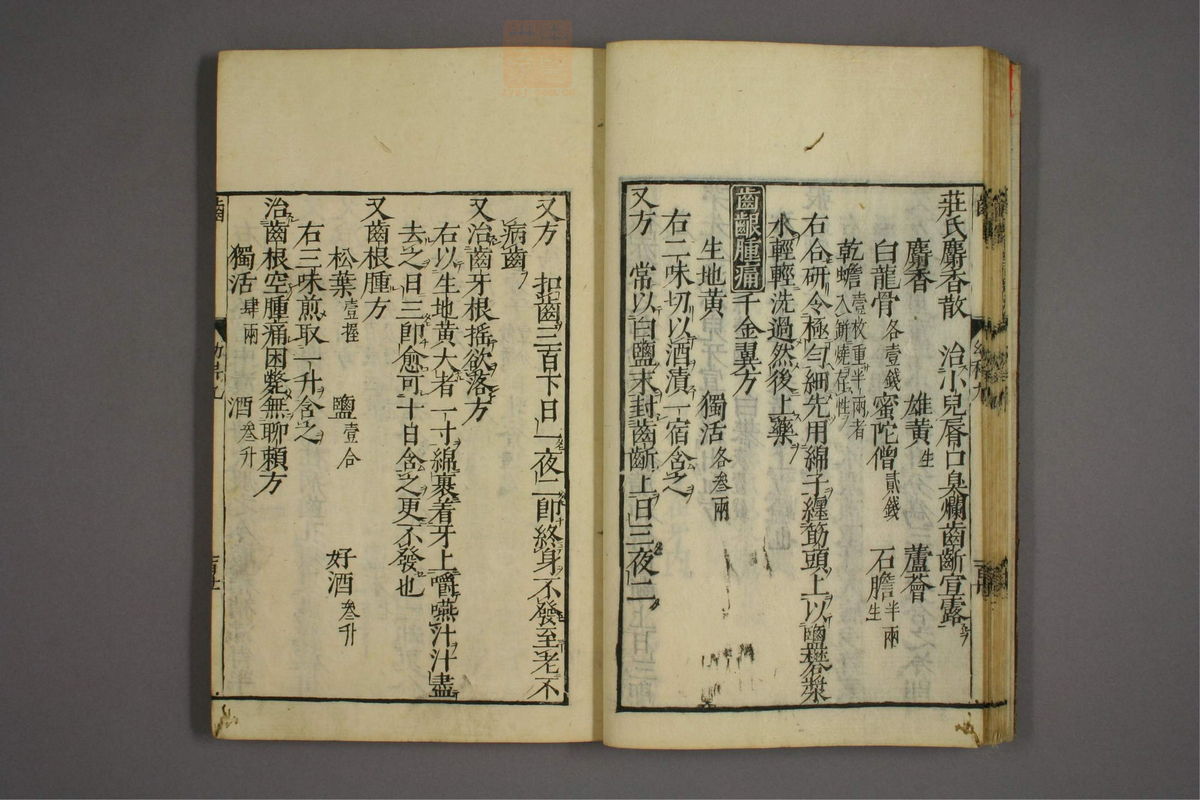 莊氏麝香散 治小兒脣口臭爛齒齗宣露
麝香 雄黃生 蘆薈
白龍骨各壹錢 蜜陀僧貳錢 石膽半兩生
乾蟾壹枚重半兩者入餅燒存性
右合研令極勻細先用綿子纏筯頭上以鹽礬漿
水輕輕洗過然後上藥
齒齦腫痛 千金翼方
生地黃 獨活各叄兩
右二味切以酒漬一宿含之
又方 常以白鹽末封齒齗上日三夜二
又方 扣齒三百下日一夜二即終身不發至老不
病齒
又治齒牙根搖欲落方
右以生地黃大者一寸綿裹着牙上嚼嚥汁汁盡
去之日三即愈可十日含之更不發也
又齒根腫方
松葉壹握 鹽壹合 好酒叄升
右三味煎取一升含之
治齒根空腫痛困獘無聊賴方
獨活肆兩 酒叄升
齒